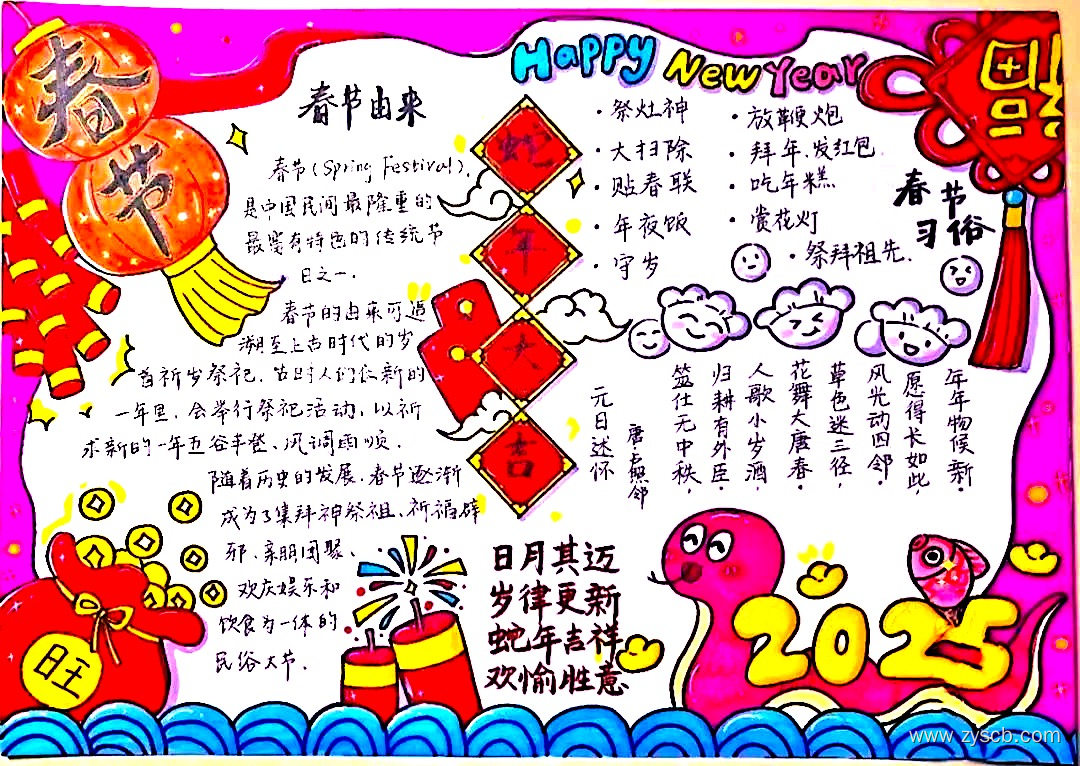 春节
Happy New Year
福
春节由来
春节(Spring Festival),
是中国民间最隆重的
最富有特色的传统节
日之一.
春节的由来可追
溯至上古时代的岁
首祈岁祭祀.当时人们在新的
一年里,会举行祭祀活动,以祈
求新的一年五谷丰登、风调雨顺.
随着历史的发展,春节逐渐
成为了集拜神祭祖、祈福辟
邪、亲朋团聚、
欢庆娱乐和
饮食为一体的
民俗大节.
旺
蛇
年
大
吉
春节
习俗
·祭灶神
·大扫除
·贴春联
·年夜饭
·守岁
·放鞭炮
·拜年、发红包
·吃年糕
·赏花灯
·祭拜祖先.
元日述怀
唐·卢照邻
筮仕无中秩,
归耕有外臣.
人歌小岁酒,
花舞大唐春.
草色迷三径,
风光动四邻.
愿得长如此,
年年物候新.
日月其迈
岁律更新
蛇年吉祥
欢愉胜意
2025
www.zyscb.com